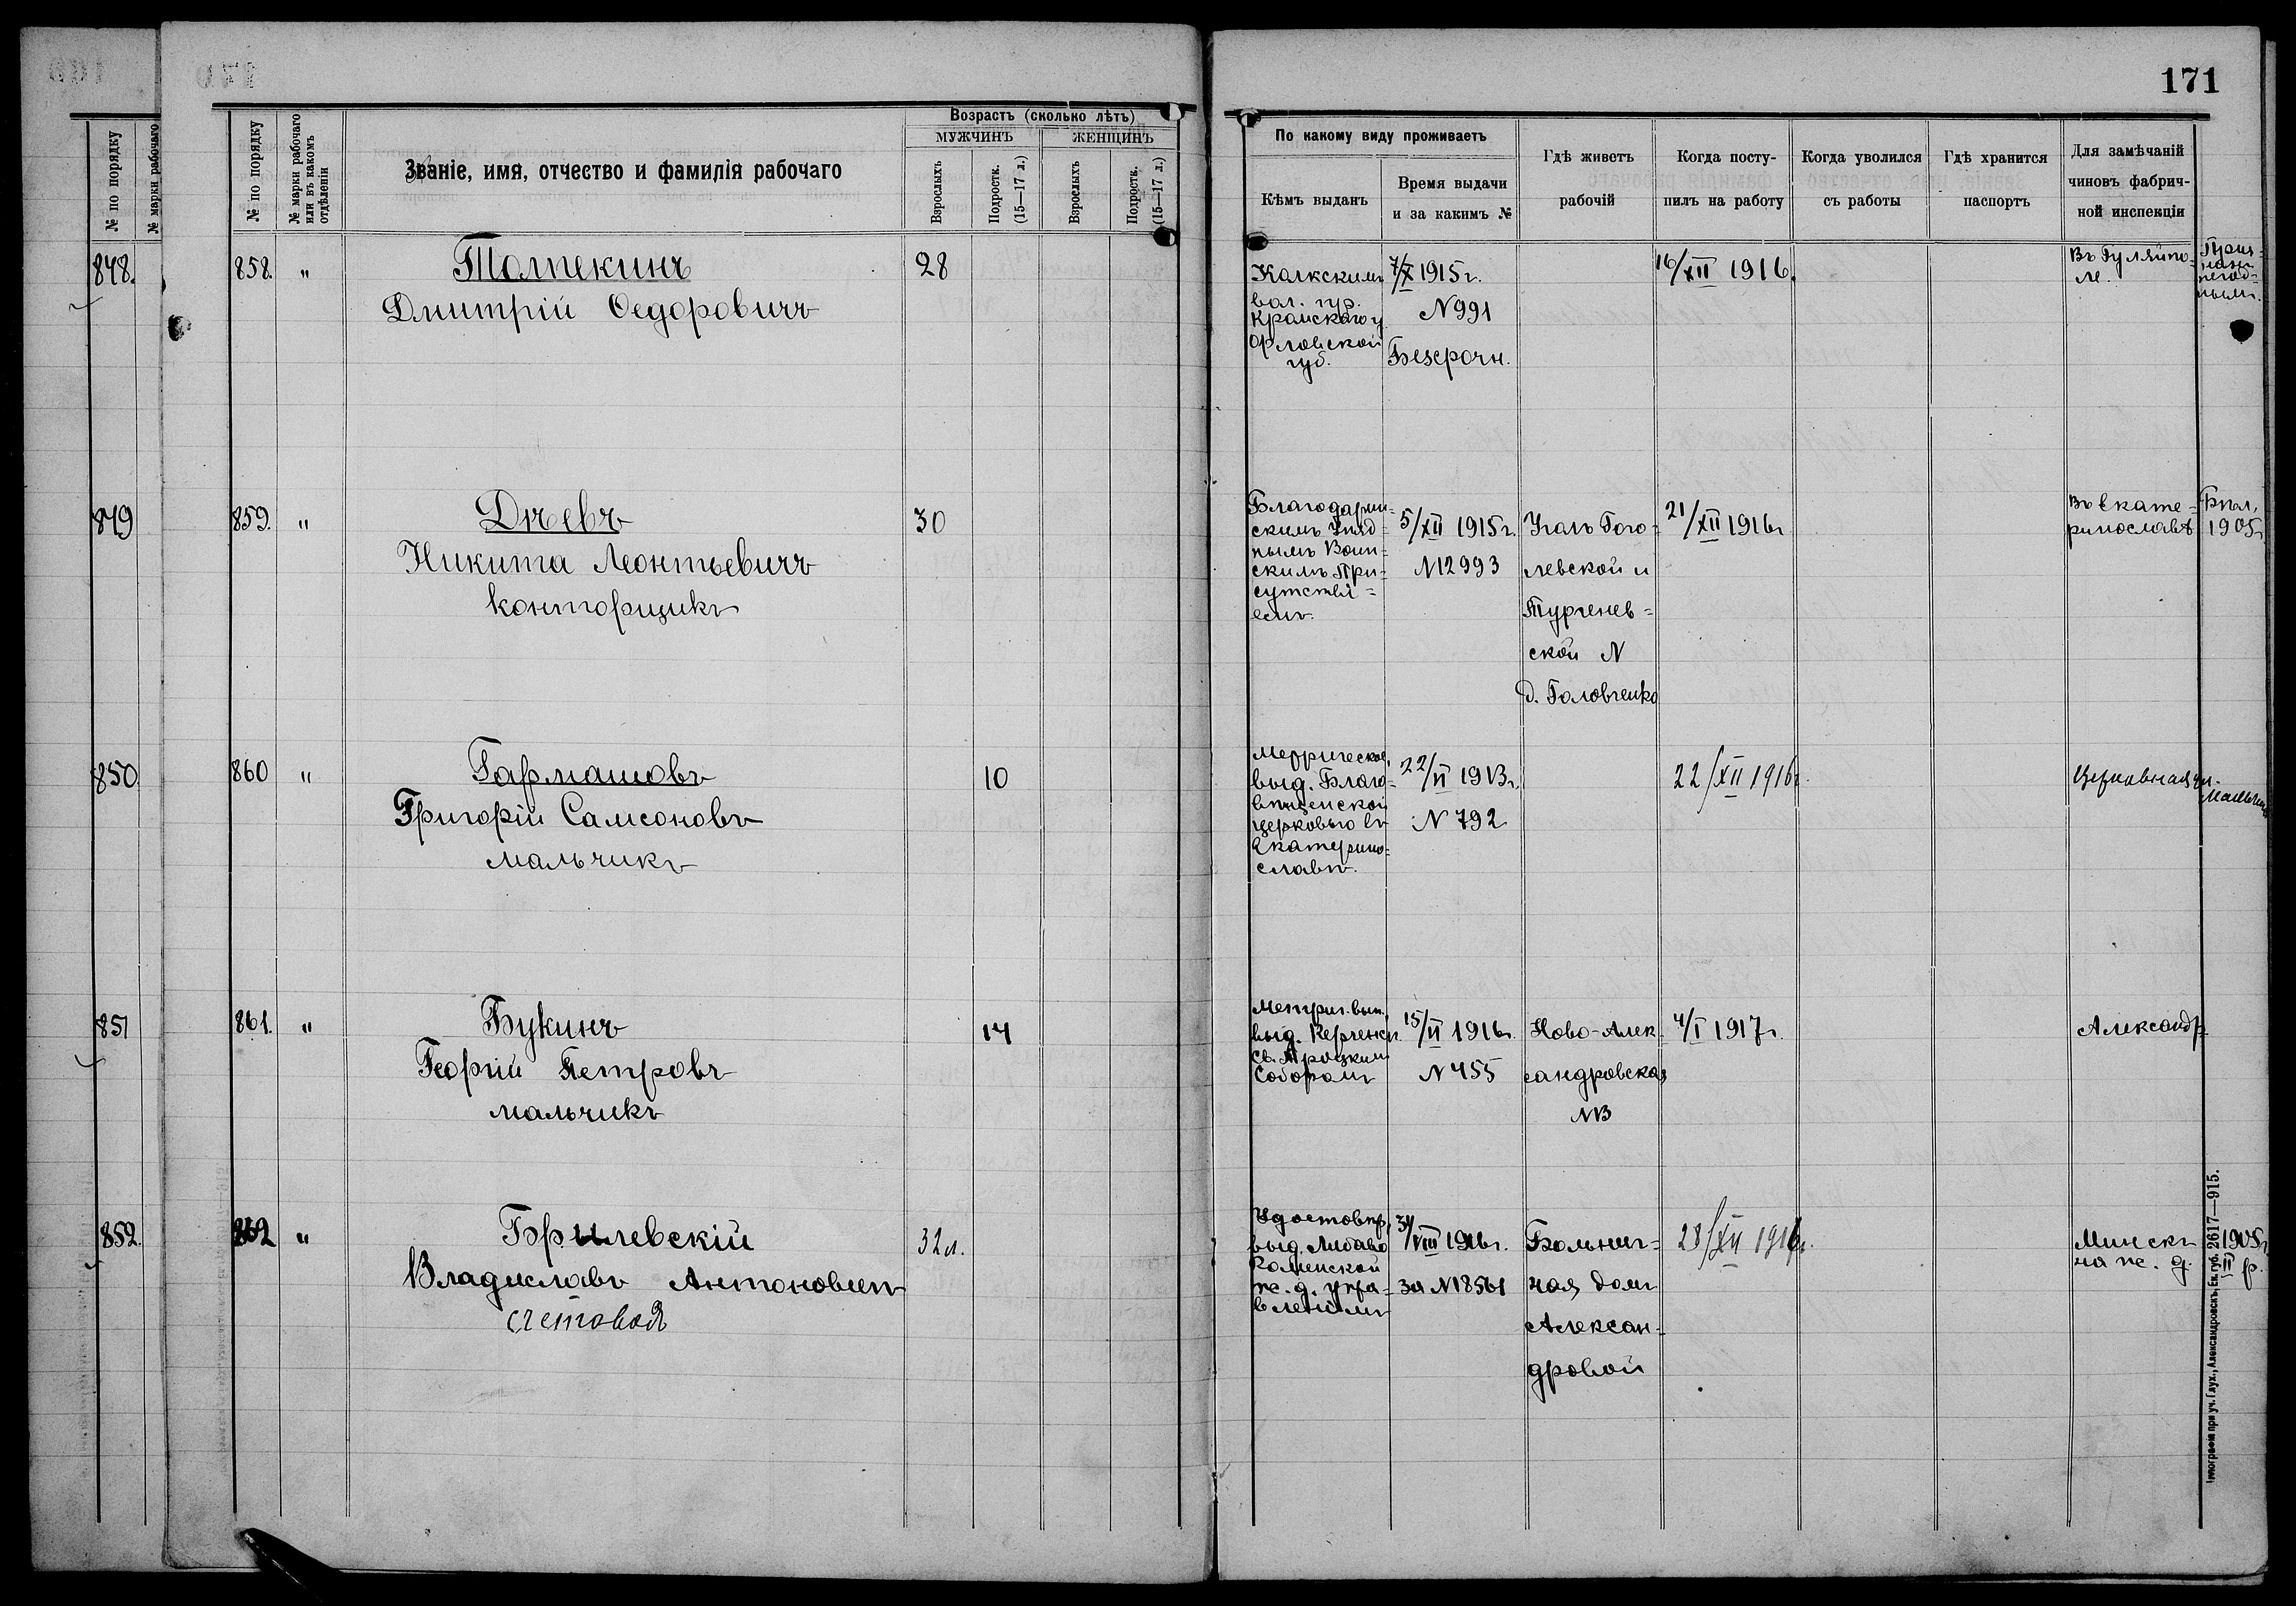 171
№ по порядку
№ марки рабочаго
№ по порядку
№ марки рабочаго или въ какомъ отдѣленіи
Званіе, имя, отчество и фамилія рабочаго
Возрастъ (сколько лѣтъ)
МУЖЧИНЪ
ЖЕНЩИНЪ
Взрослыхъ
Подростк. (15—17 л.)
Взрослыхъ
Подростк. (15—17 л.)
По какому виду проживаетъ
Кѣмъ выданъ
Время выдачи
и за какимъ №
Гдѣ живетъ
рабочій
Когда посту-
пилъ на работу
Когда уволился
съ работы
Гдѣ хранится
паспортъ
Для замѣчаній
чиновъ фабрич-
ной инспекціи
848.
858. "
Толпекинъ
Дмитрій Ѳедоровичъ
28
вол. пр.
Кромскаго у.
Орловской
губ.
7/X 1915 г.
N 991
Безсрочн.
16/XII 1916.
Въ Гуляйпо-
ле.
849
859. "
Никита Леонтьевичъ
конторщикъ
30
Благодарин-
скимъ Уѣзд-
нымъ Воин-
скимъ При-
сутстві-
емъ.
5/XII 1915 г.
N 12993
Уголъ Гого-
левской и
Тургенев-
ской N
д. Головченко
21/XII 1916 г
Въ Екате-
ринославѣ
1905 г
850
860 "
Гармашовъ
Григорій Самсоновъ
мальчикъ
10
выд. Благо-
вѣщенской
церковью въ
Екатерино-
славѣ.
22/II 1913 г.
N 792
22/XII 1916 г.
851
861. "
Букинъ
Георгій Петровъ
мальчикъ
14
Метрич. вып.
выд. Керченск.
Св. Троицким
Соборомъ
15/II 1916 г.
N 455
Ново-Алек-
сандровская
N 13
4/I 1917 г.
Александр.
852.
862 "
Брилевскій
Владиславъ Антоновичъ
счетовод
32 л.
Удостовѣр.
выд. Либаво
Роменской
ж. д. упра-
вленіемъ
31/VIII 1916 г.
за N 18561
Больнич-
ная домъ
Алексан-
дровой
28/XII 1916 г.
Минскъ
на ж. д.
1905 г.
II р.
Типографія при уч. Глух., Александровскъ, Ек. губ. 2617—915.